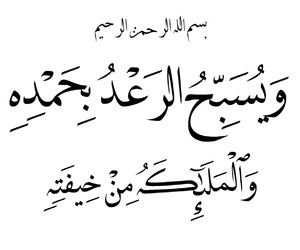 بسم الله الرحمن الرحيم
وَيُسَبِّحُ الرَّعْدُ بِحَمْدِهِ
وَالْمَلَائِكَةُ مِنْ خِيفَتِهِ